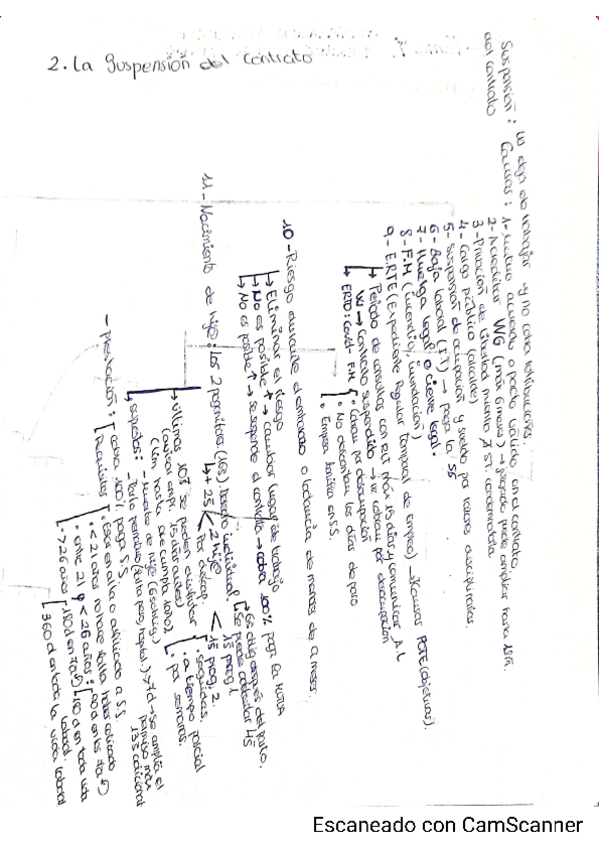 2. La Suspensión del Contrato
Suspensión : W deja de trabajar y no cobra retribuciones.
del contrato
Causas : 1- Mutuo acuerdo o pacto válido en el contrato.
2- Acreditar WG (máx 6 meses) → juzgado puede ampliar hasta 18m.
3- Privación de libertad mientras ∄ ST. condenatoria
4- Cargo público (alcalde)
5- Suspensión de ocupación y sueldo por razones disciplinarias.
6- Baja laboral (I.T) → paga la SS
7- Huelga legal o cierre legal.
8- F.M (incendio, inundación)
9- E.R.T.E (Expediente Regulador Temporal de Empleo) → causas POTE (objetivas).
↳ Periodo de consultas con RLT máx 15 días y comunicar A.L
W → contrato suspendido → W cobran por desocupación
↳ ERTO: Const. F.M
• Cobran por desocupación
• No descuentan los días de paro
• Empresa cotiza en S.S.
10- Riesgo durante el embarazo o lactancia de menores de 9 meses.
↳ Eliminar el riesgo
↳ No es posible ↑ → cambiar lugar de trabajo
↳ No es posible ↑ → se suspende el contrato → cobra 100% paga la MUTUA
11- Nacimiento de hijo : Los 2 progenitores (16s) Derecho individual
6s oblig después del parto.
Se puede adelantar 4s
↳ + 2s < 2º hijo
Por discap.
< 1s prog 1
1s prog. 2.
↳ últimas 10s se pueden disfrutar
• seguidas.
• a tiempo parcial
• por semanas.
(avisar emp. 15 días antes)
(Lim hasta que cumpla 1 año).
↳ supuestos: - Muerte de hijo (6s oblig)
- Parto prematuro (falta peso, hospital.) > 7d → se amplía el permiso máx 13s adicional
- Prestación :
cobra 100% paga S.S
Requisitos
• Estar en alta o afiliado a S.S.
• < 21 años no hace falta haber cotizado
• entre 21 y < 26 años :
90 d en los 7a
180 d en toda vida laboral.
• > 26 años
180 d en 7a
360 d en toda la vida laboral
Escaneado con CamScanner